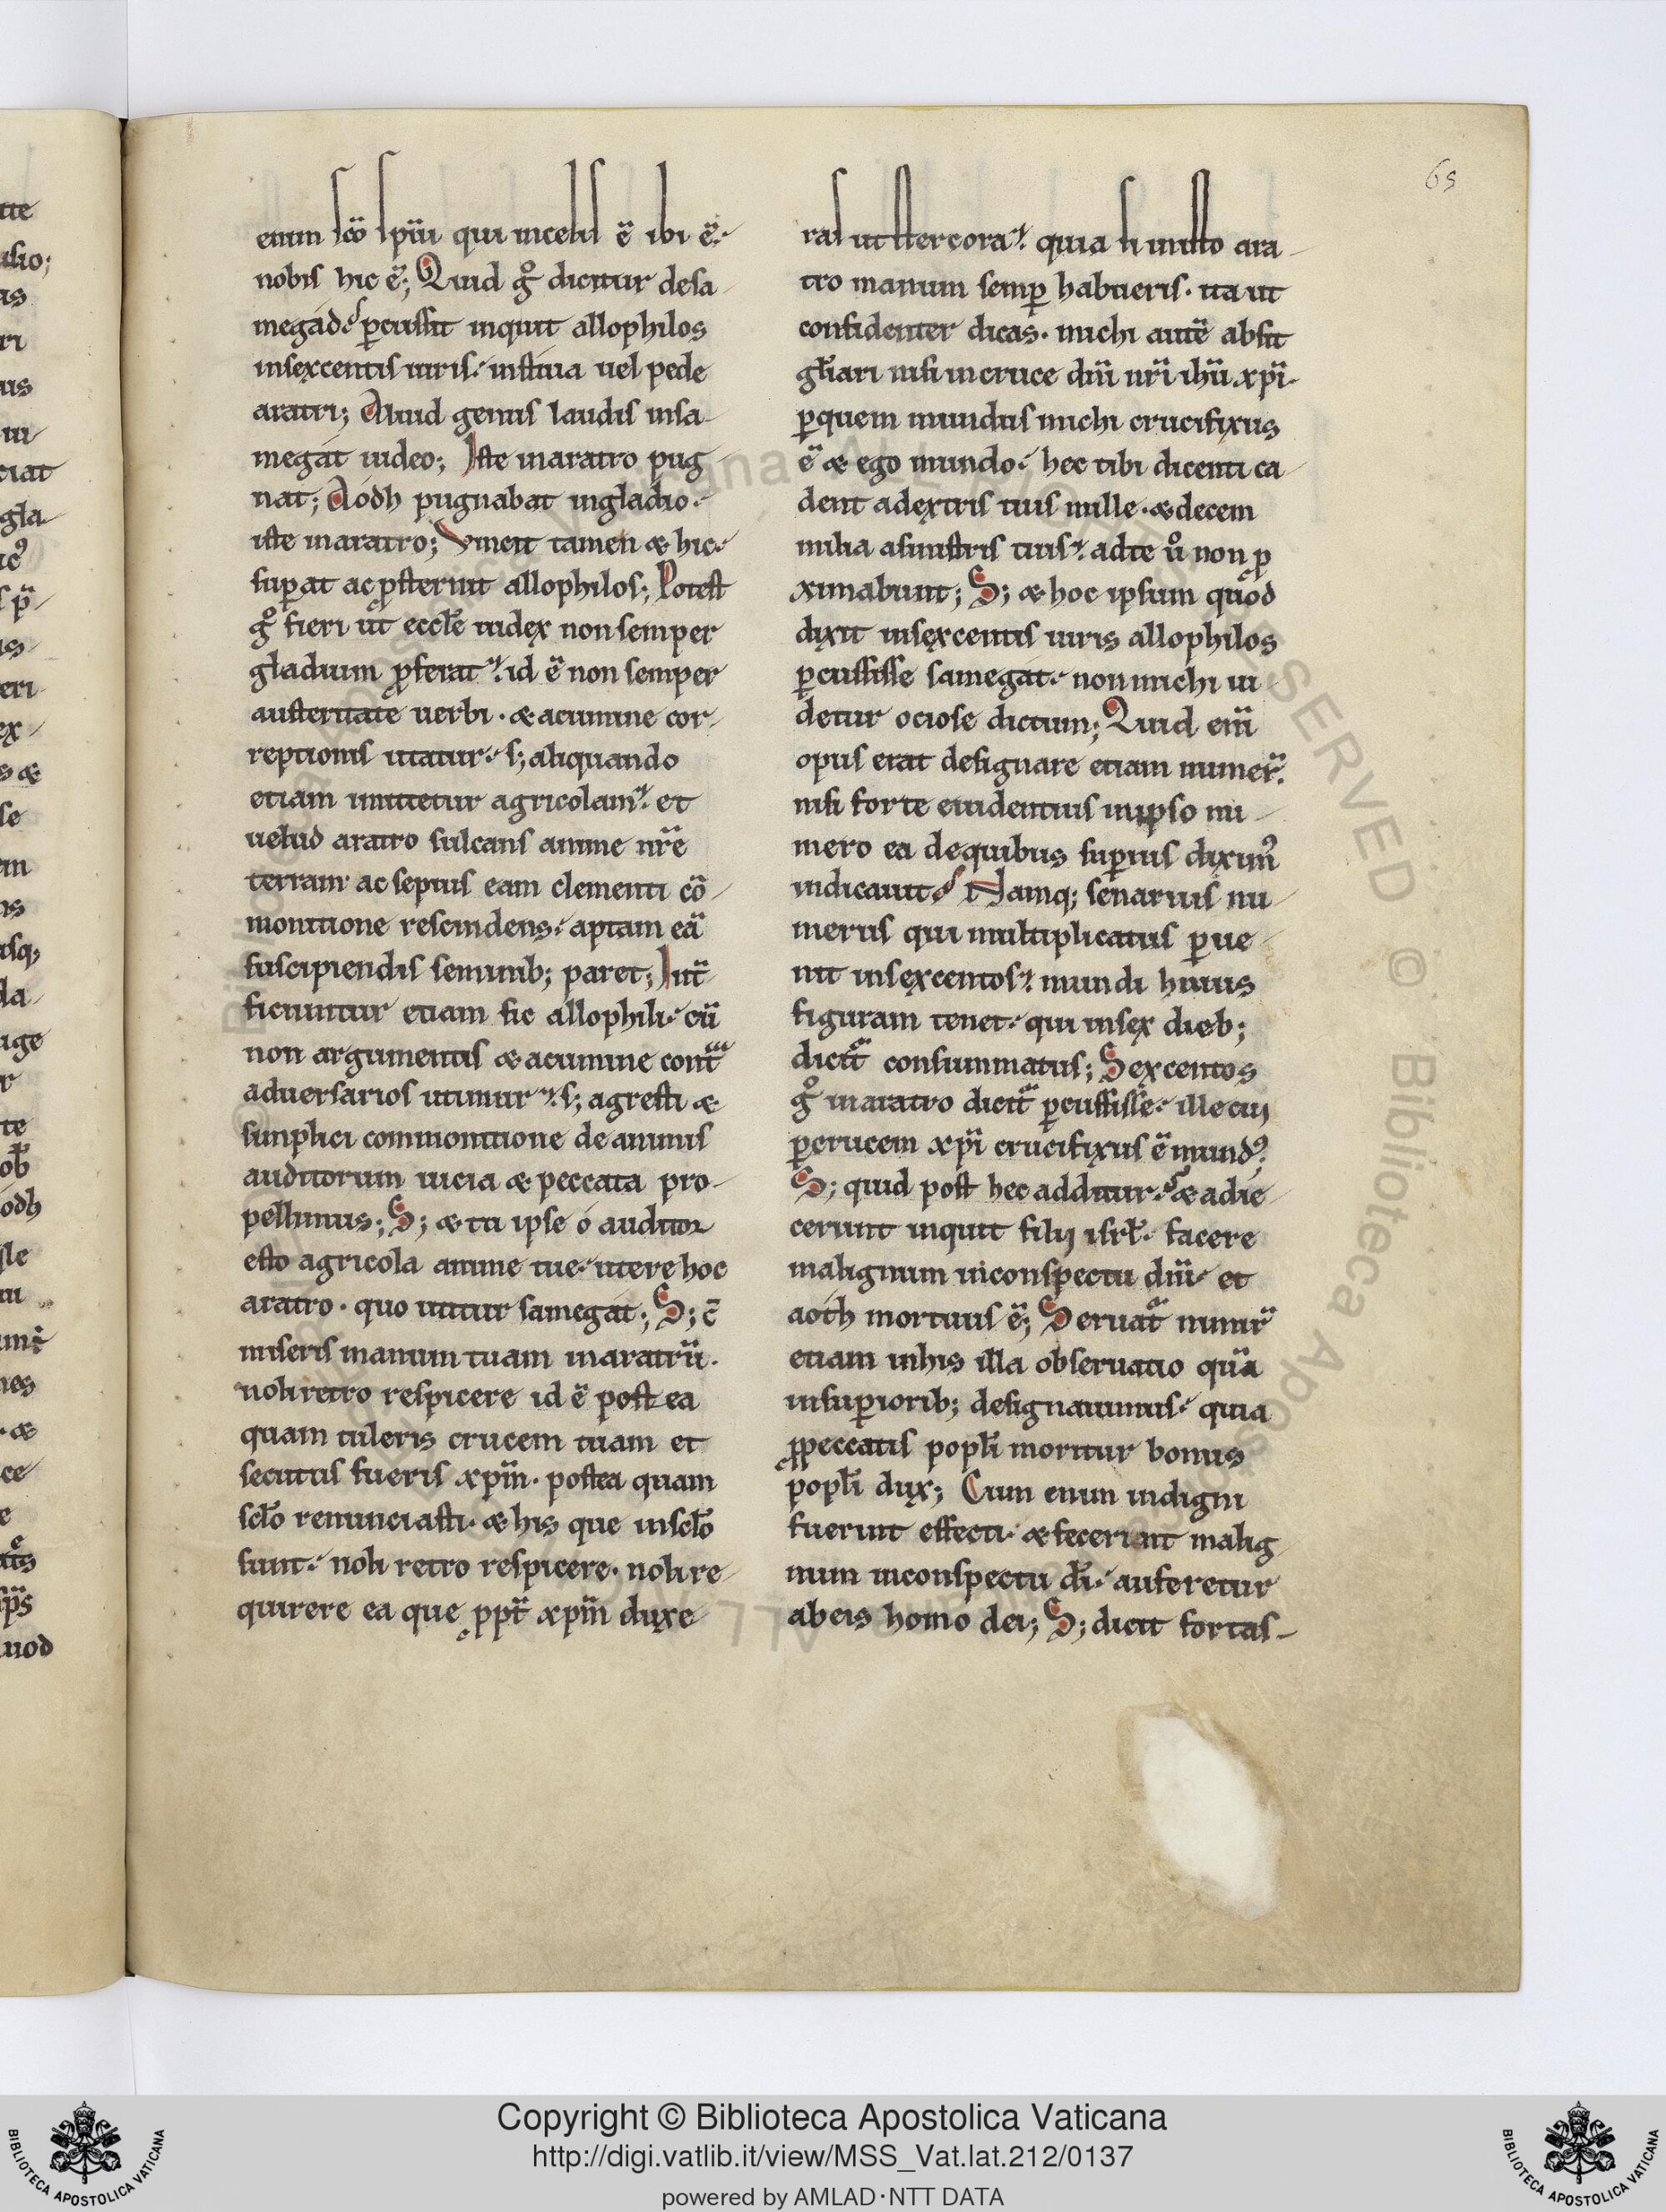 65
enim sc̄o sp̄ui qui incelis ē ibi ē.
nobis hic ē; Quid gͦ dicitur desa
megád. ꝑcussit inquit allophilos
insexcentis uiris. instiua uel pede
aratri; Aliud genus laudis insa
megát iudeo; Iste inaratro pug
nat; Aódh pugnabat ingladio.
iste inaratro; Vincit tamen & hic.
suꝑat ac ꝓsternit allophilos; Potest
gͦ fieri ut eccl̄e iudex non semper
gladium ꝓferat. id ē non semper
austeritate uerbi. & acumine cor
reptionis utatur. s; aliquando
etiam imitetur agricolam. et
uelud aratro sulcans anime nr̄e
terram ac sepius eam clementi cō
monitione rescindens. aptam eā
suscipiendis seminib; paret; Int̄
ficiuntur etiam sic allophili. cū
non argumentis & acumine contᵃ
aduersarios utimur. s; agresti &
simplici commonitione de animis
auditorum uicia & peccata pro
pellimus; S; & tu ipse ó auditor
esto agricola anime tue. utere hoc
aratro. quo utitur samegát; S; c̄
miseris manum tuam inaratrū.
noli retro respicere id ē post ea
quam tuleris crucem tuam et
secutus fueris xp̄m. postea quam
scl̄o renunciasti. & his que inscl̄o
sunt. noli retro respicere. noli re
quirere ea que ꝓpt̄ xp̄m duxe
ras ut stercora. quia si in isto ara
tro manum semꝑ habueris. ita ut
confidenter dicas. michi autē absit
gl̄iari nisi incruce dn̄i nr̄i ihū xp̄i.
ꝑquem mundus michi crucifixus
ē & ego mundo. hec tibi dicenti ca
dent adextris tuis mille. & decem
milia asinistris tuis. adte uͦ non ꝓ
ximabunt; S; & hoc ipsum quod
dixit insexcentis uiris allophilos
ꝑcussisse samegát. non michi ui
detur ociose dictum; Quid eni̅
opus erat designare etiam numer̄.
nisi forte euidentius inipso nu
mero ea dequibus suꝑius dixim᾿
indicauit. Namq; senarius nu
merus qui multiplicatus ꝑue
nit insexcentos. mundi huius
figuram tenet. qui insex dieb;
dicit̄ consummatus; Sexcentos
gͦ inaratro dicit̄ ꝑcussisse. ille cui
ꝑcrucem xp̄i crucifixus ē mund᾿.
S; quid post hec additur. & adie
cerunt inquit filij isrl̄. facere
malignum inconspectu dn̄i. et
aoth mortuus ē; Seruat̄ nimir̄
etiam inhis illa obseruatio quā
insuꝑiorib; designauimus. quia
ꝓpeccatis popl̄i moritur bonus
popl̄i dux; Cum enim indigni
fuerint effecti. & fecerint malig
num inconspectu dī. auferetur
abeis homo dei; S; dicit fortas
Copyright © Biblioteca Apostolica Vaticana
http://digi.vatlib.it/view/MSS_Vat.lat.212/0137
powered by AMLAD·NTT DATA
BIBLIOTECA APOSTOLICA VATICANA
BIBLIOTECA APOSTOLICA VATICANA